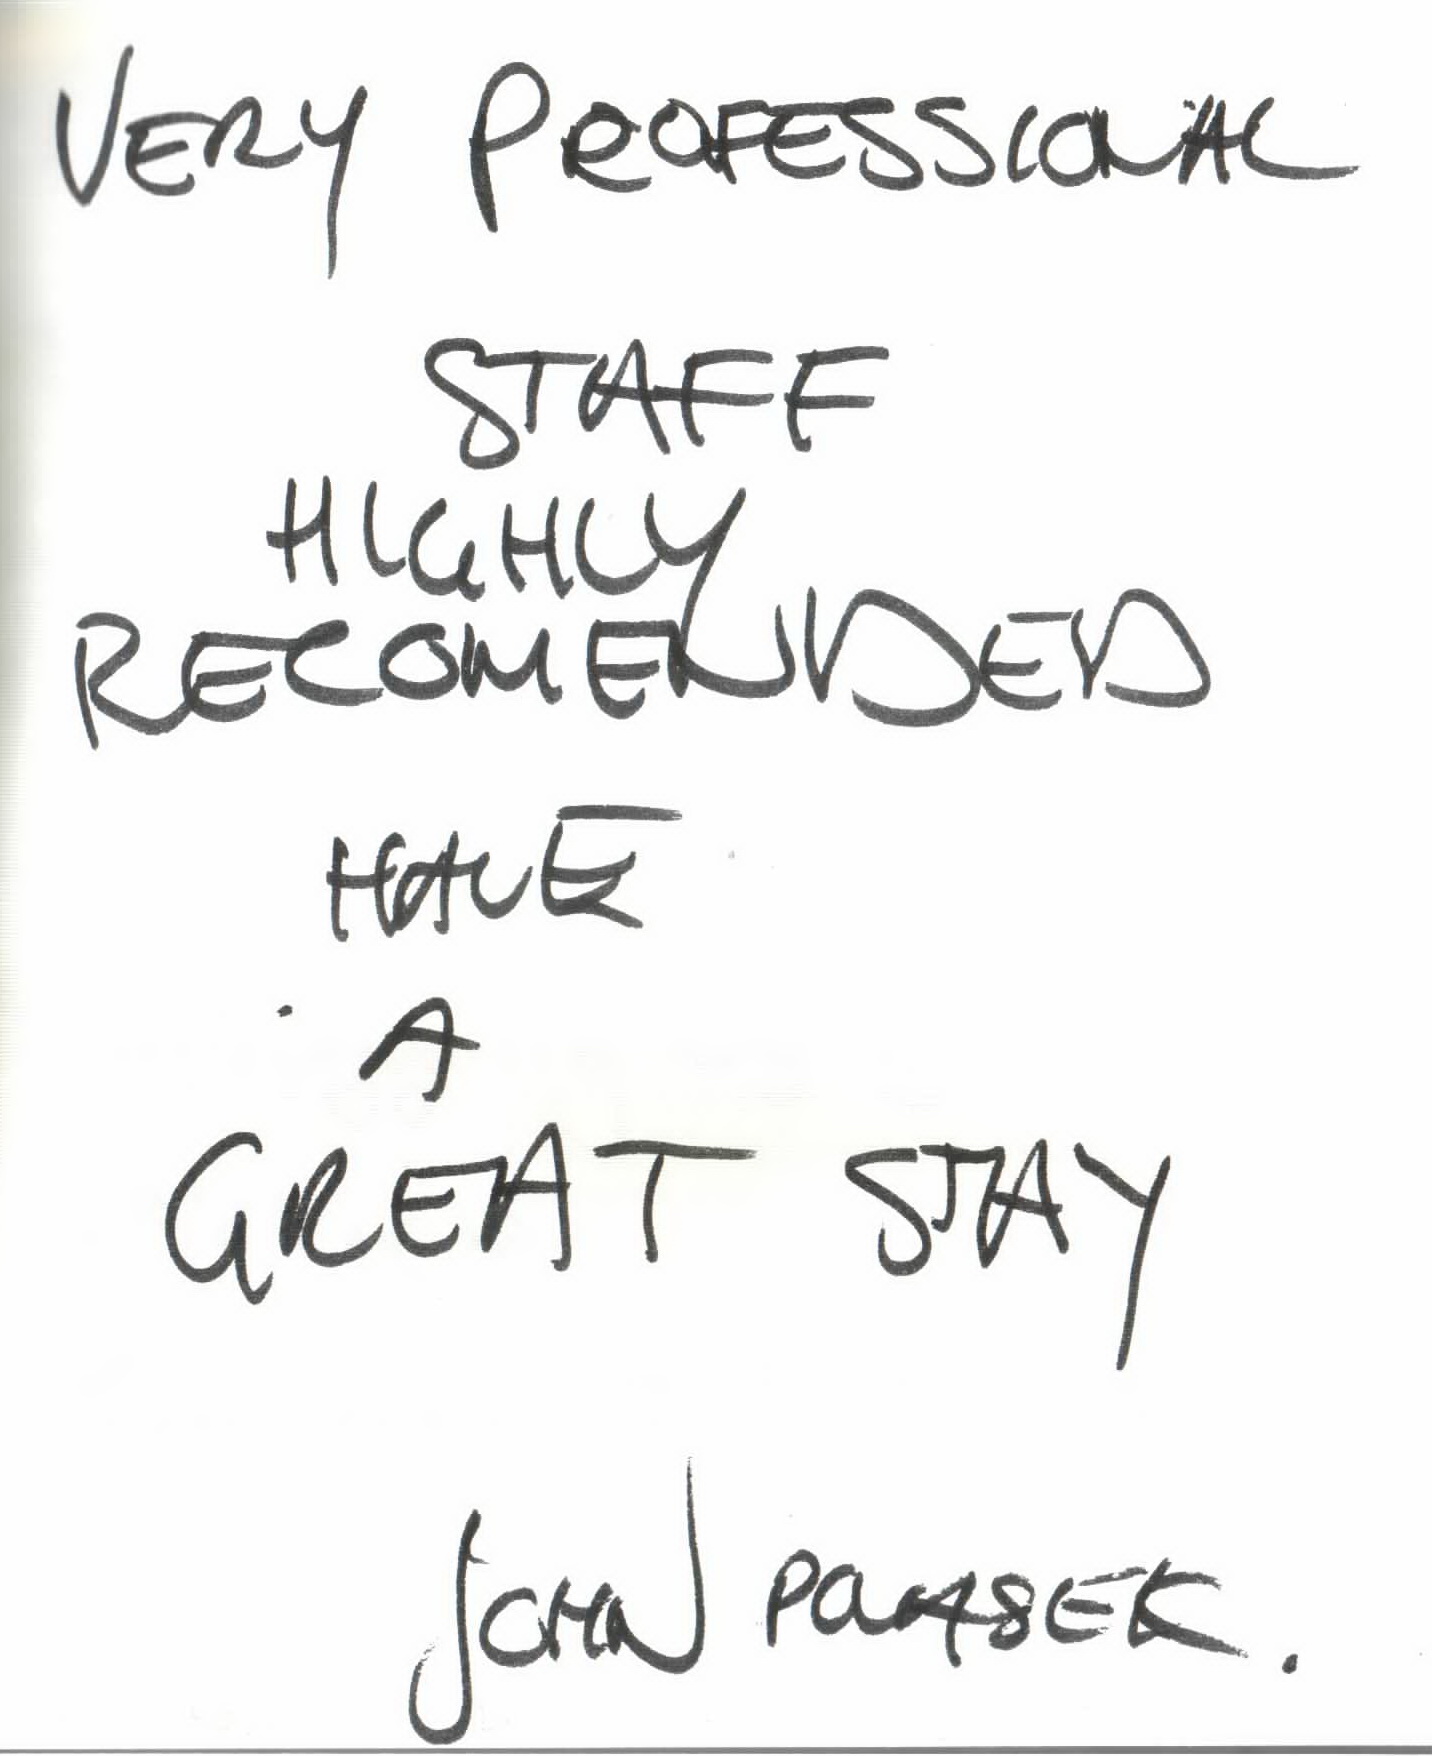 VERY PROFESSIONAL
STAFF
HIGHLY
RECOMENDED
HAVE
A
GREAT STAY
JOHN